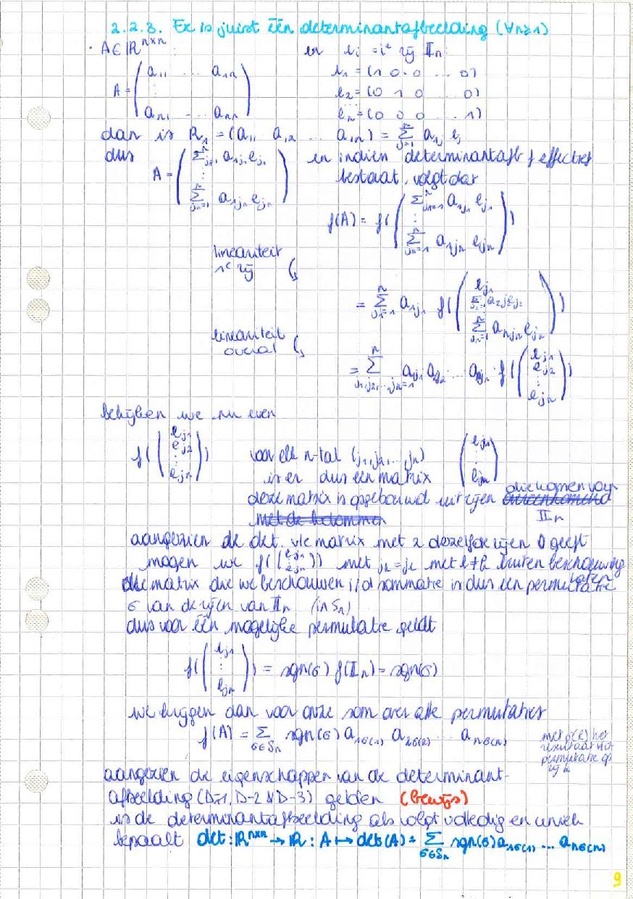 2.2.3. Er is juist één determinantafbeelding (∀n≥1)
· A ∈ ℝⁿˣⁿ en e_i = iᵉ rij 𝕀_n:
A = (a_11 ... a_1n ⋮ a_n1 ... a_nn) e_1 = (1 0 0 ... 0)
e_2 = (0 1 0 0)
⋮
e_n = (0 0 0 ... 1)
dan is R_1 = (a_11 a_12 ... a_1n) = Σ_{j=1}^n a_1j e_j
dus A = (Σ_{j_1=1}^n a_1j_1 e_j_1 ⋮ Σ_{j_n=1}^n a_nj_n e_j_n) en indien determinantafb f effectief
bestaat, volgt dat
f(A) = f((Σ_{j_1=1}^n a_1j_1 e_j_1 ⋮ Σ_{j_n=1}^n a_nj_n e_j_n))
lineariteit
1ᵉ rij
= Σ_{j_1=1}^n a_1j_1 f((e_j_1 Σ_{j_2=1} a_2j_2 e_j_2 ⋮ Σ_{j_n=1}^n a_nj_n e_j_n))
lineariteit
overal
= Σ_{j_1,j_2,...,j_n=1}^n a_1j_1 a_2j_2 ... a_nj_n · f((e_j_1 e_j_2 ⋮ e_j_n))
bekijken we nu even
f((e_j_1 e_j_2 ⋮ e_j_n)) voor elk n-tal (j_1, j_2, ..., j_n)
is er dus een matrix (e_j_1 ⋮ e_j_n)
deze matrix is opgebouwd uit rijen die komen van
𝕀_n
aangezien de det. v/e matrix met 2 dezelfde rijen 0 geeft
mogen we f((e_j_1 ⋮ e_j_n)) met j_k = j_l met l ≠ k buiten beschouwing
laten
elke matrix die we beschouwen i/d sommatie is dus een permutatie
σ van de rijen van 𝕀_n (in S_n)
dus voor één mogelijke permutatie geldt
f((e_j_1 ⋮ e_j_n)) = sgn(σ) f(𝕀_n) = sgn(σ)
we krijgen dan voor onze som over alle permutaties
f(A) = Σ_{σ∈S_n} sgn(σ) a_1σ(1) a_2σ(2) ... a_nσ(n)
met σ(i) het
resultaat v/d
permutatie op
aangezien de eigenschappen van de determinant-
afbeelding (D-1, D-2 & D-3) gelden (bewijs)
is de determinantafbeelding als volgt volledig en uniek
bepaalt det: ℝⁿˣⁿ → ℝ : A ↦ det(A) = Σ_{σ∈S_n} sgn(σ) a_1σ(1) ... a_nσ(n)
9